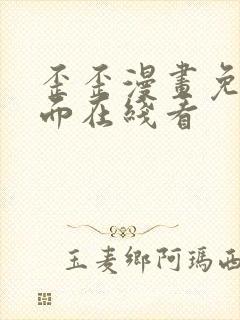 歪歪漫畫免
而在綫看
玉麦鄉阿瑪西